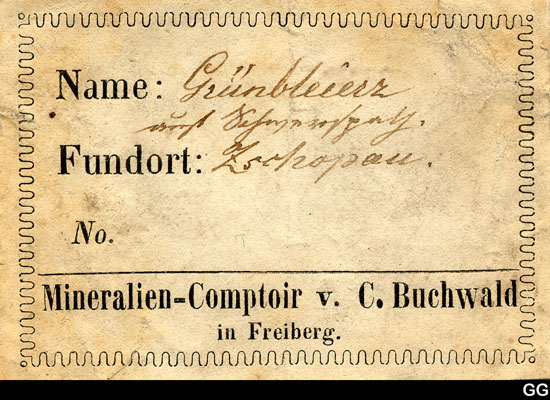 Name: Grünbleierz
auf Schwerspath.
Fundort: Zschopau.
No.
Mineralien-Comptoir v. C. Buchwald
in Freiberg.
GG